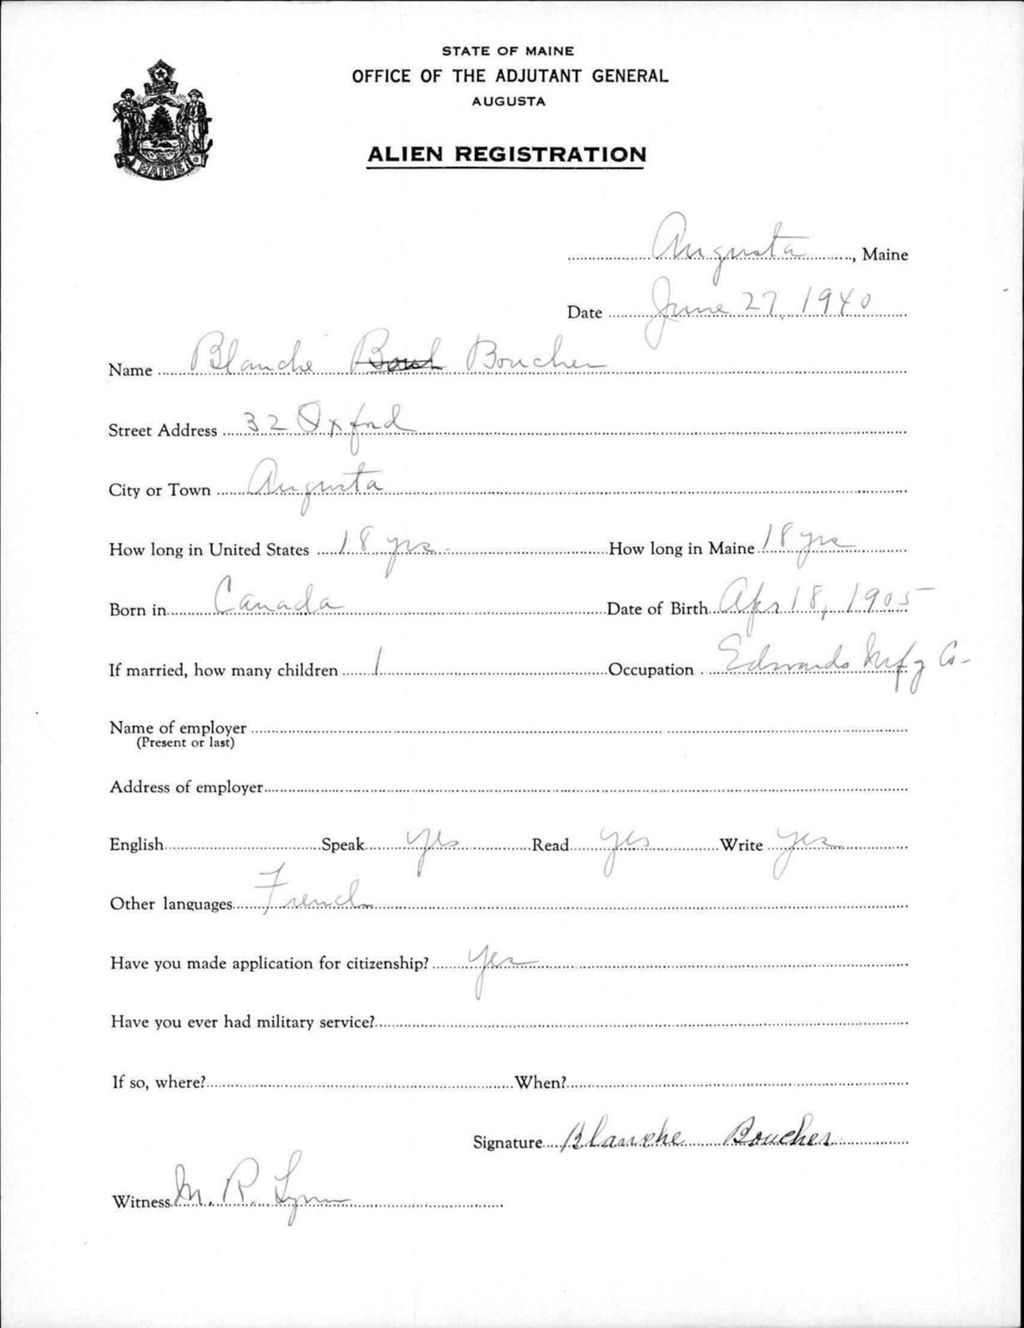 STATE OF MAINE
OFFICE OF THE ADJUTANT GENERAL
AUGUSTA
MAINE
ALIEN REGISTRATION
Augusta, Maine
Date June 27, 1940
Name Blanche Boucher
Street Address 32 Oxford
City or Town Augusta
How long in United States 18 yrs. How long in Maine 18 yrs
Born in Canada Date of Birth Apr 18, 1905
If married, how many children 1 Occupation Edwards Mfg Co-
Name of employer
(Present or last)
Address of employer
English Speak yes Read yes Write yes
Other languages French
Have you made application for citizenship? yes
Have you ever had military service?
If so, where? When?
Signature Blanche Boucher
Witness M. R. Lynn